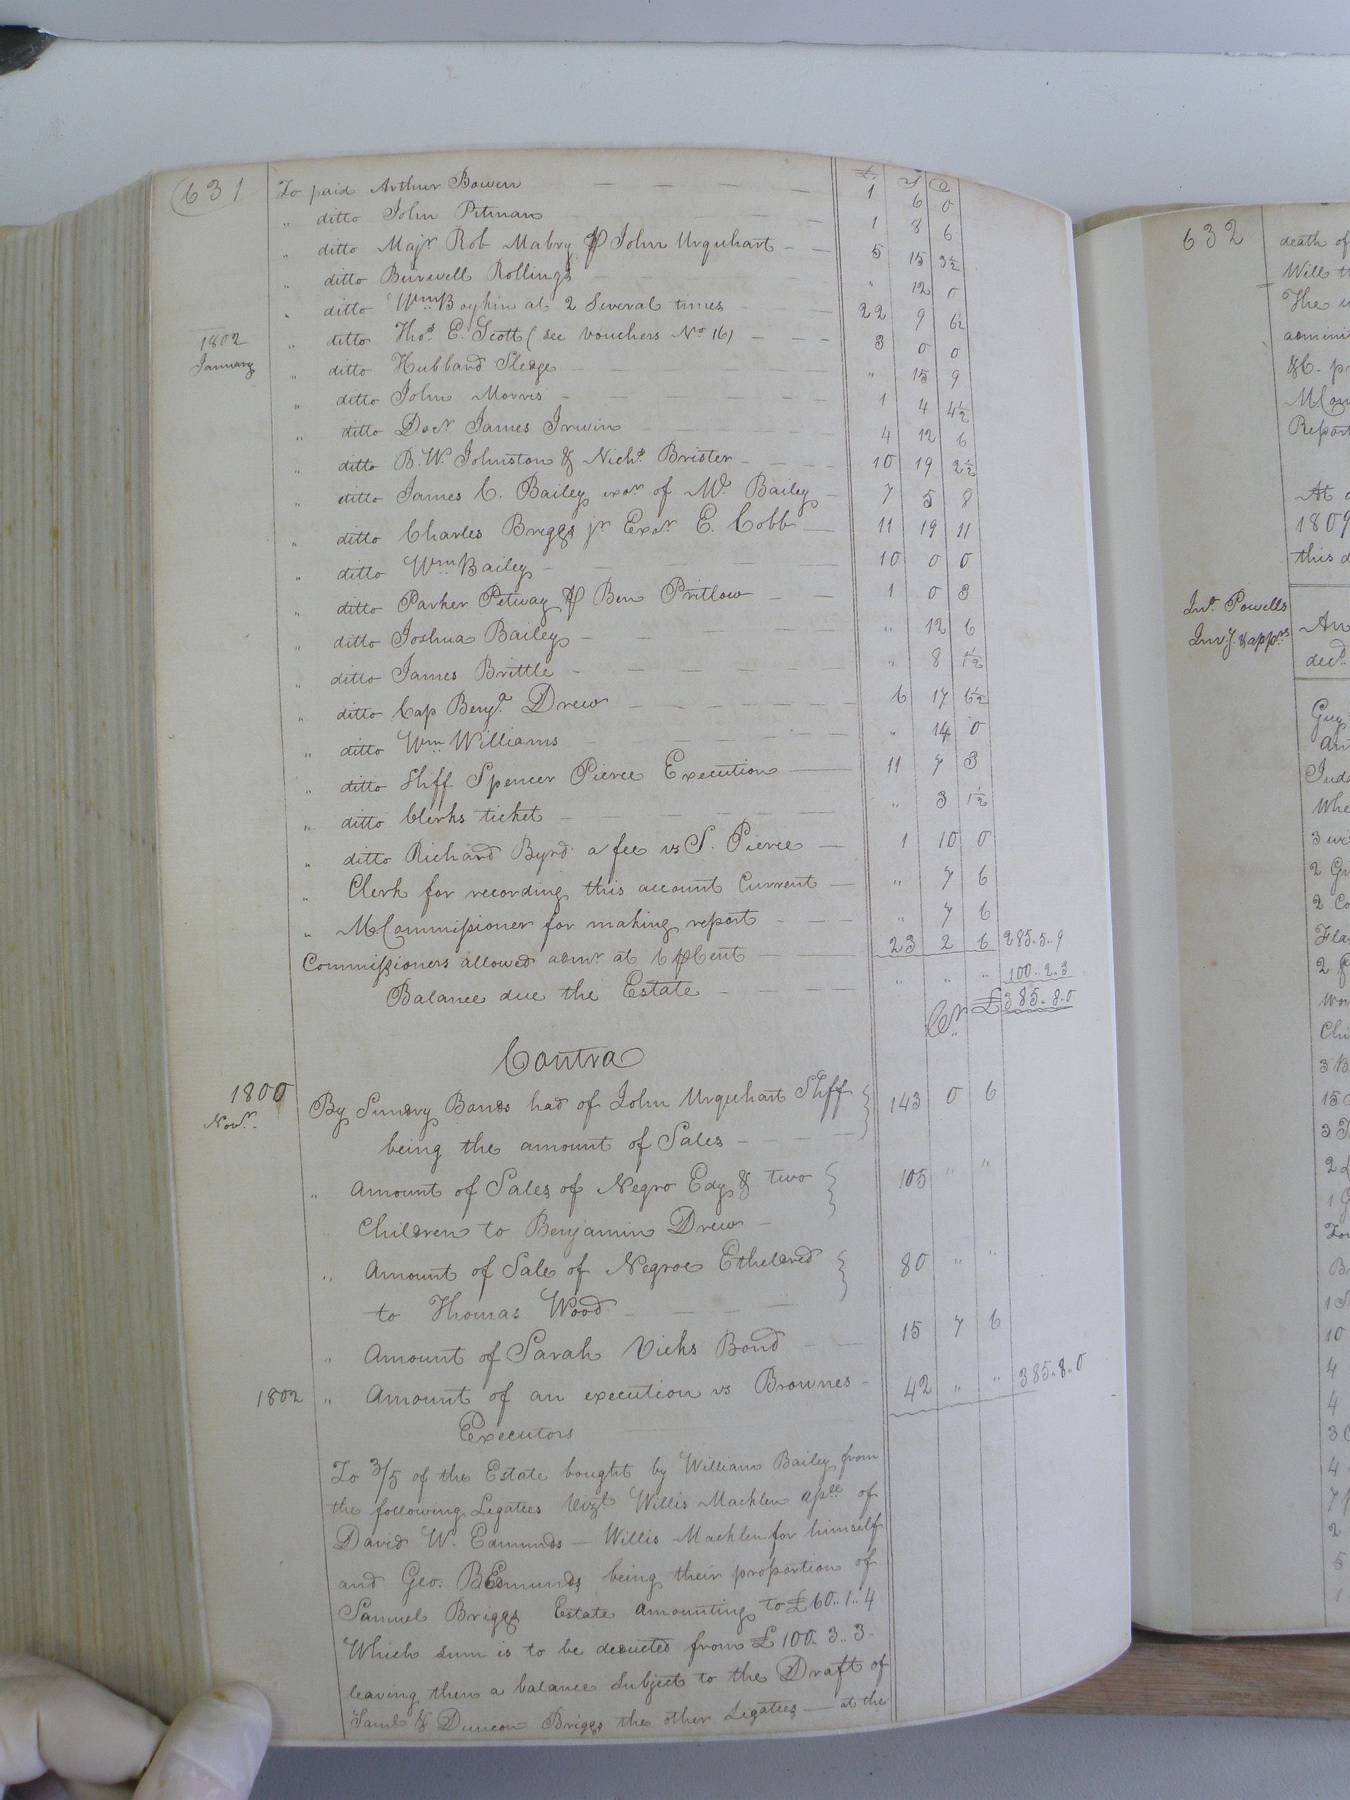 631
£ S D
To paid Arthur Bowen — — — — 1 6 0
" ditto John Pitman — — — — 1 8 6
" ditto Majr. Rob Mabry & John Urquhart — — 5 15 3½
" ditto Burwell Rollings — — — — " 12 0
" ditto Wm. Boykin at 2 Several times — — 22 9 6½
1802 January " ditto Thos. E. Scott (see vouchers No 16) — — — 3 0 0
" ditto Hubbard Sledge — — — — " 15 9
" ditto John Morris — — — — 1 4 4½
" ditto Docr. James Irwin — — — — 4 12 6
" ditto B. W. Johnston & Nichs. Brister — — — 10 19 2½
" ditto James C. Bailey exor of W. Bailey — 7 5 8
" ditto Charles Briggs jr Exor. E. Cobb — 11 19 11
" ditto Wm. Bailey — — — — 10 0 0
" ditto Parker Petway & Ben Pritlow — — 1 0 3
" ditto Joshua Bailey — — — — " 12 6
" ditto James Brittle — — — — " 8 1½
" ditto Cap Benja. Drew — — — — 6 17 6½
" ditto Wm. Williams — — — — " 14 0
" ditto Shff Spencer Pierce Execution — 11 7 3
" ditto Clerks ticket — — — — " 3 1½
" ditto Richard Byrd a fee vs S. Pierce — 1 10 0
" Clerk for recording this account Current — " 7 6
" M. Commissioner for making report — — — " 7 6
Commissioners allowed admr. at 6 ⅌ Cent — — — 23 2 6 285..5..9
Balance due the Estate — — — — " " " 100..2.3
Cr. £385.8.0
Contra
1800 Novr. By Sundry Bonds had of John Urquhart Shff } 143 0 6
being the amount of Sales — — — —
" Amount of Sales of Negro Edy & two } 105 " "
Children to Benjamin Drew —
" Amount of Sale of Negroe Etheldred } 80 " "
to Thomas Wood — — —
" Amount of Sarah Vicks Bond — — 15 7 6
1802 " Amount of an execution vs Brownes — 42 " " 385.8.0
Executors
To 3/5 of the Estate bought by William Bailey from
the following Legatees Vizt Willis Macklen of
David W. Edmunds — Willis Macklen for himself
and Geo. B Edmunds being their proportion of
Samuel Briggs Estate amounting to £60..1..4
Which sum is to be deducted from £100.3..3.
leaving then a balance Subject to the Draft of
& Duncan Briggs the other Legatees — at the
632
death of
Will
The
admini
&C. pr
MCom
Report
At a
1809
this d
Jno. Powells
Invy. & apprs.
An
decd.
Guy
Jude
Whe
3
2
2 Co
Fla
2
Chi
3 B
15
3
2
1
B
1
10
4
4
3
4
7
2
5
1